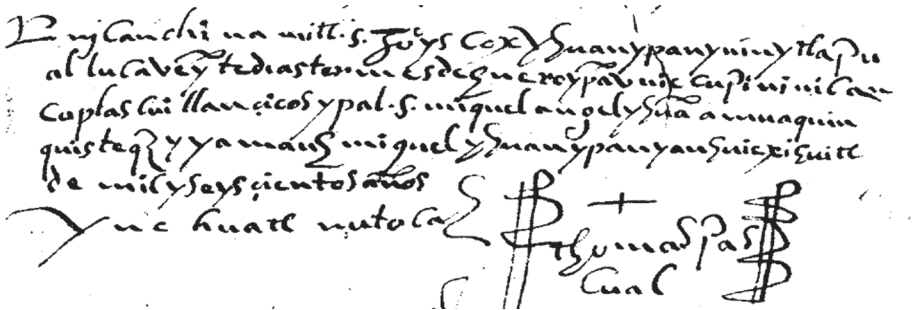 nicanchi na mitl. s. Juo ys cox y huan ypan ynin ytlapu
al lucaveynte dias ton mes de henero y pa v nic cupi ni nican
coplas hui llançicos y pal. s. miquel angel y hua amuaquin
quistequ y yamauh miquel y huan ypan yanhuic xihuitl
de mil y seys çientos años
ync huatl nutocah
thomas pas
cual